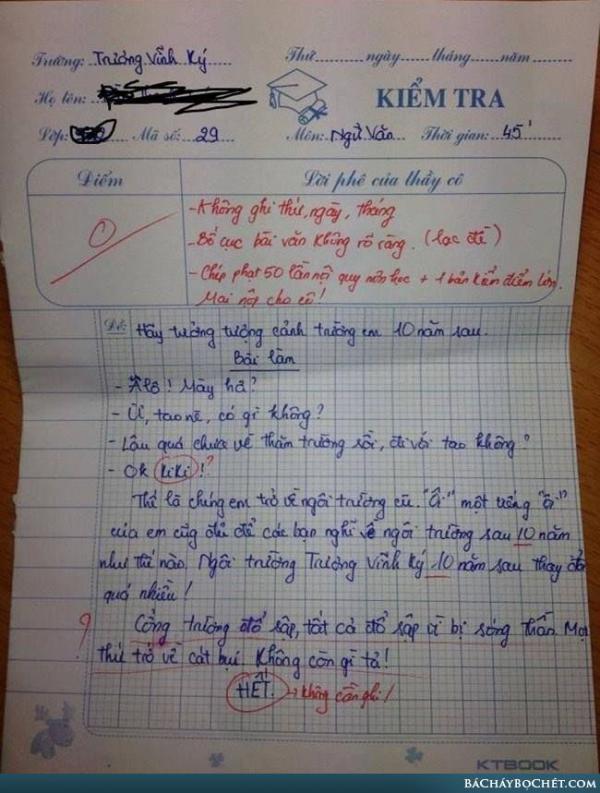 Trường: Trương Vĩnh Ký Thứ ngày tháng năm
Họ tên:
KIỂM TRA
Lớp: Mã số: 29 Môn: Ngữ Văn Thời gian: 45'
Điểm Lời phê của thầy cô
0
- Không ghi thứ, ngày, tháng
- Bố cục bài văn không rõ ràng. (lạc đề)
- Chép phạt 50 lần nội quy môn học + 1 bản kiểm điểm lớn.
Mai nộp cho cô!
Đề: Hãy tưởng tượng cảnh trường em 10 năm sau.
Bài làm
- Alô! Mày hả?
- Ừ, tao nè, có gì không?
- Lâu quá chưa về thăm trường rồi, đi với tao không?
- Ok KiKi!?
Thế là chúng em trở về ngôi trường cũ. "Ồ" một tiếng "ồ"
của em cũng đủ để các bạn nghĩ về ngôi trường sau 10 năm
như thế nào. Ngôi trường Trương Vĩnh Ký 10 năm sau thay đổi
quá nhiều!
? Cổng trường đổ sập, tất cả đổ sập vì bị sóng thần. Mọi
thứ trở về cát bụi. Không còn gì tả!
HẾT. → không cần ghi!
KTBOOK
BÁCHÁYBỌCHÉT.COM